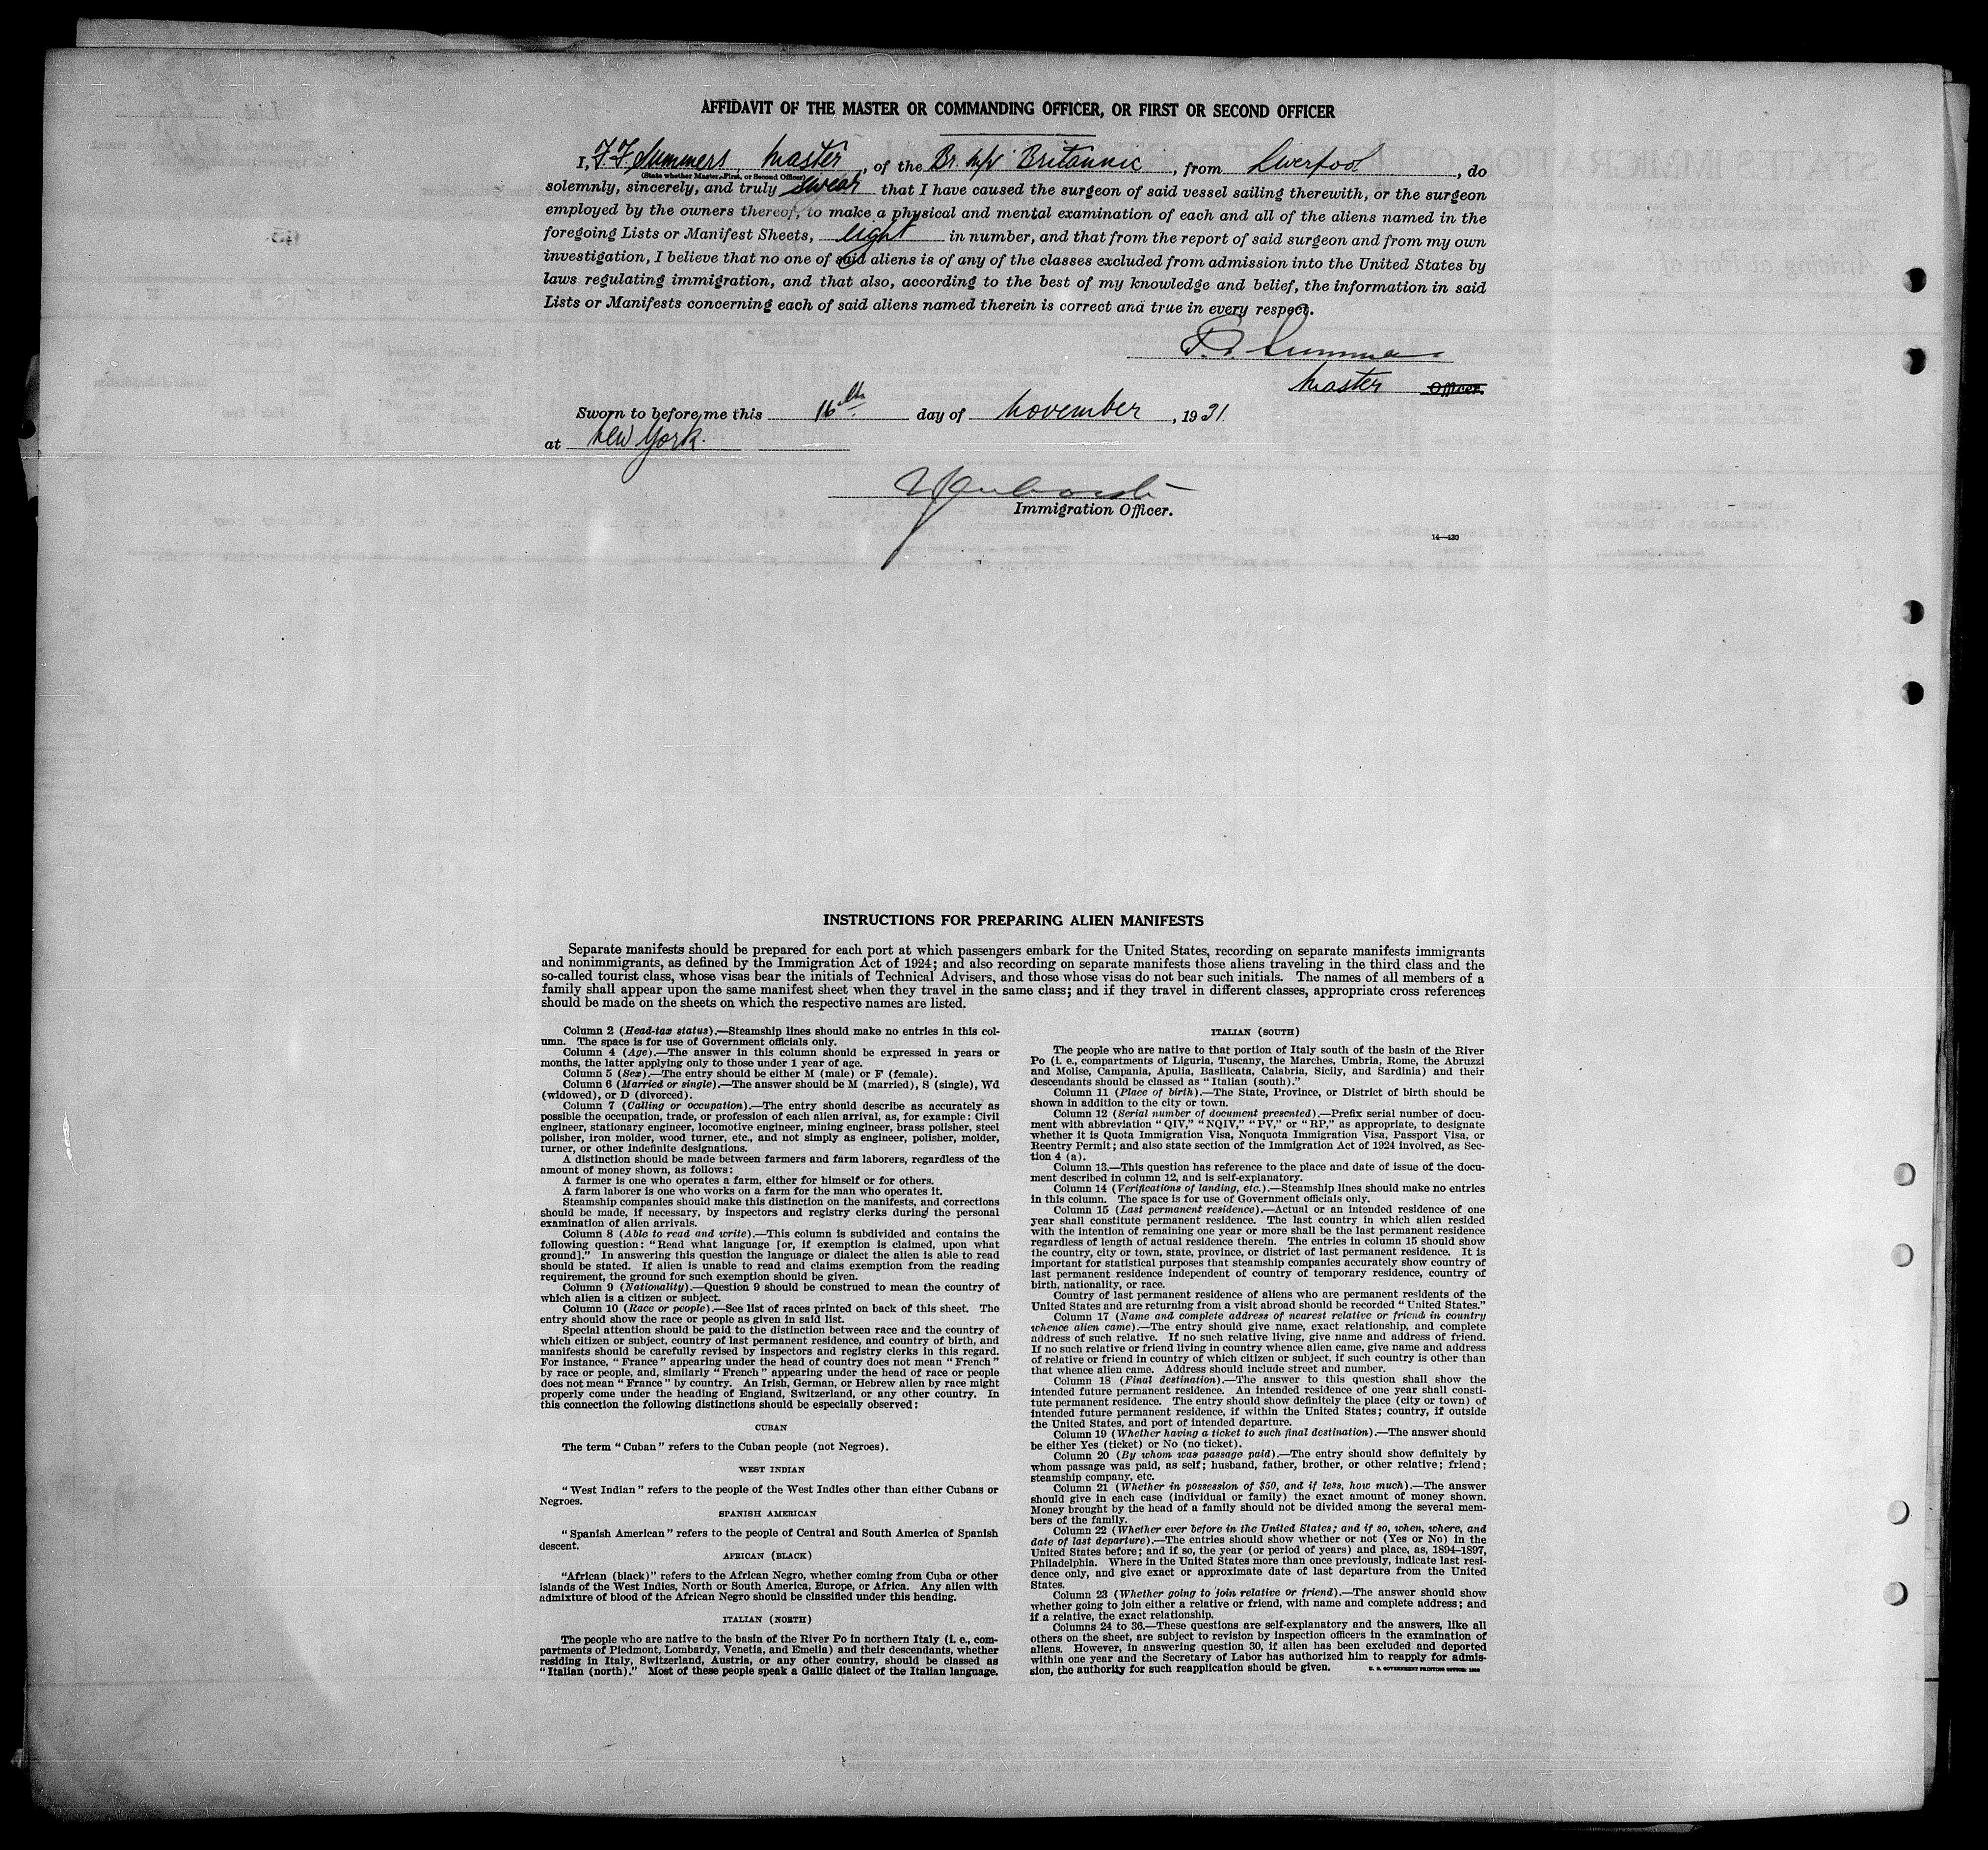 AFFIDAVIT OF THE MASTER OR COMMANDING OFFICER, OR FIRST OR SECOND OFFICER
I, F. F. Summers, Master, of the Br. M/V Britannic, from Liverpool, do
(State whether Master, First, or Second Officer)
solemnly, sincerely, and truly swear that I have caused the surgeon of said vessel sailing therewith, or the surgeon
employed by the owners thereof, to make a physical and mental examination of each and all of the aliens named in the
foregoing Lists or Manifest Sheets, eight in number, and that from the report of said surgeon and from my own
investigation, I believe that no one of said aliens is of any of the classes excluded from admission into the United States by
laws regulating immigration, and that also, according to the best of my knowledge and belief, the information in said
Lists or Manifests concerning each of said aliens named therein is correct and true in every respect.
F. F. Summers
Master Officer.
Sworn to before me this 16th day of November, 1931.
at New York.
Immigration Officer.
14—430
INSTRUCTIONS FOR PREPARING ALIEN MANIFESTS
Separate manifests should be prepared for each port at which passengers embark for the United States, recording on separate manifests immigrants
and nonimmigrants, as defined by the Immigration Act of 1924; and also recording on separate manifests those aliens traveling in the third class and the
so-called tourist class, whose visas bear the initials of Technical Advisers, and those whose visas do not bear such initials. The names of all members of a
family shall appear upon the same manifest sheet when they travel in the same class; and if they travel in different classes, appropriate cross references
should be made on the sheets on which the respective names are listed.
Column 2 (Head-tax status).—Steamship lines should make no entries in this col-
umn. The space is for use of Government officials only.
Column 4 (Age).—The answer in this column should be expressed in years or
months, the latter applying only to those under 1 year of age.
Column 5 (Sex).—The entry should be either M (male) or F (female).
Column 6 (Married or single).—The answer should be M (married), S (single), Wd
(widowed), or D (divorced).
Column 7 (Calling or occupation).—The entry should describe as accurately as
possible the occupation, trade, or profession of each alien arrival, as, for example: Civil
engineer, stationary engineer, locomotive engineer, mining engineer, brass polisher, steel
polisher, iron molder, wood turner, etc., and not simply as engineer, polisher, molder,
turner, or other indefinite designations.
A distinction should be made between farmers and farm laborers, regardless of the
amount of money shown, as follows:
A farmer is one who operates a farm, either for himself or for others.
A farm laborer is one who works on a farm for the man who operates it.
Steamship companies should make this distinction on the manifests, and corrections
should be made, if necessary, by inspectors and registry clerks during the personal
examination of alien arrivals.
Column 8 (Able to read and write).—This column is subdivided and contains the
following question: "Read what language [or, if exemption is claimed, upon what
ground]." In answering this question the language or dialect the alien is able to read
should be stated. If alien is unable to read and claims exemption from the reading
requirement, the ground for such exemption should be given.
Column 9 (Nationality).—Question 9 should be construed to mean the country of
which alien is a citizen or subject.
Column 10 (Race or people).—See list of races printed on back of this sheet. The
entry should show the race or people as given in said list.
Special attention should be paid to the distinction between race and the country of
which citizen or subject, country of last permanent residence, and country of birth, and
manifests should be carefully revised by inspectors and registry clerks in this regard.
For instance, "France" appearing under the head of country does not mean "French"
by race or people, and, similarly "French" appearing under the head of race or people
does not mean "France" by country. An Irish, German, or Hebrew alien by race might
properly come under the heading of England, Switzerland, or any other country. In
this connection the following distinctions should be especially observed:
CUBAN
The term "Cuban" refers to the Cuban people (not Negroes).
WEST INDIAN
"West Indian" refers to the people of the West Indies other than either Cubans or
Negroes.
SPANISH AMERICAN
"Spanish American" refers to the people of Central and South America of Spanish
descent.
AFRICAN (BLACK)
"African (black)" refers to the African Negro, whether coming from Cuba or other
islands of the West Indies, North or South America, Europe, or Africa. Any alien with
admixture of blood of the African Negro should be classified under this heading.
ITALIAN (NORTH)
The people who are native to the basin of the River Po in northern Italy (i. e., com-
partments of Piedmont, Lombardy, Venetia, and Emelia) and their descendants, whether
residing in Italy, Switzerland, Austria, or any other country, should be classed as
"Italian (north)." Most of these people speak a Gallic dialect of the Italian language.
ITALIAN (SOUTH)
The people who are native to that portion of Italy south of the basin of the River
Po (i. e., compartments of Liguria, Tuscany, the Marches, Umbria, Rome, the Abruzzi
and Molise, Campania, Apulia, Basilicata, Calabria, Sicily, and Sardinia) and their
descendants should be classed as "Italian (south)."
Column 11 (Place of birth).—The State, Province, or District of birth should be
shown in addition to the city or town.
Column 12 (Serial number of document presented).—Prefix serial number of docu-
ment with abbreviation "QIV," "NQIV," "PV," or "RP," as appropriate, to designate
whether it is Quota Immigration Visa, Nonquota Immigration Visa, Passport Visa, or
Reentry Permit; and also state section of the Immigration Act of 1924 involved, as Sec-
tion 4 (a).
Column 13.—This question has reference to the place and date of issue of the docu-
ment described in column 12, and is self-explanatory.
Column 14 (Verifications of landing, etc.).—Steamship lines should make no entries
in this column. The space is for use of Government officials only.
Column 15 (Last permanent residence).—Actual or an intended residence of one
year shall constitute permanent residence. The last country in which alien resided
with the intention of remaining one year or more shall be the last permanent residence
regardless of length of actual residence therein. The entries in column 15 should show
the country, city or town, state, province, or district of last permanent residence. It is
important for statistical purposes that steamship companies accurately show country of
last permanent residence independent of country of temporary residence, country of
birth, nationality, or race.
Country of last permanent residence of aliens who are permanent residents of the
United States and are returning from a visit abroad should be recorded "United States."
Column 17 (Name and complete address of nearest relative or friend in country
whence alien came).—The entry should give name, exact relationship, and complete
address of such relative. If no such relative living, give name and address of friend.
If no such relative or friend living in country whence alien came, give name and address
of relative or friend in country of which citizen or subject, if such country is other than
that whence alien came. Address should include street and number.
Column 18 (Final destination).—The answer to this question shall show the
intended future permanent residence. An intended residence of one year shall consti-
tute permanent residence. The entry should show definitely the place (city or town) of
intended future permanent residence, if within the United States; country, if outside
the United States, and port of intended departure.
Column 19 (Whether having a ticket to such final destination).—The answer should
be either Yes (ticket) or No (no ticket).
Column 20 (By whom was passage paid).—The entry should show definitely by
whom passage was paid, as self; husband, father, brother, or other relative; friend;
steamship company, etc.
Column 21 (Whether in possession of $50, and if less, how much).—The answer
should give in each case (individual or family) the exact amount of money shown.
Money brought by the head of a family should not be divided among the several mem-
bers of the family.
Column 22 (Whether ever before in the United States; and if so, when, where, and
date of last departure).—The entries should show whether or not (Yes or No) in the
United States before; and if so, the year (or period of years) and place, as, 1894–1897,
Philadelphia. Where in the United States more than once previously, indicate last resi-
dence only, and give exact or approximate date of last departure from the United
States.
Column 23 (Whether going to join relative or friend).—The answer should show
whether going to join either a relative or friend, with name and complete address; and
if a relative, the exact relationship.
Columns 24 to 36.—These questions are self-explanatory and the answers, like all
others on the sheet, are subject to revision by inspection officers in the examination of
aliens. However, in answering question 30, if alien has been excluded and deported
within one year and the Secretary of Labor has authorized him to reapply for admis-
sion, the authority for such reapplication should be given. U. S. GOVERNMENT PRINTING OFFICE: